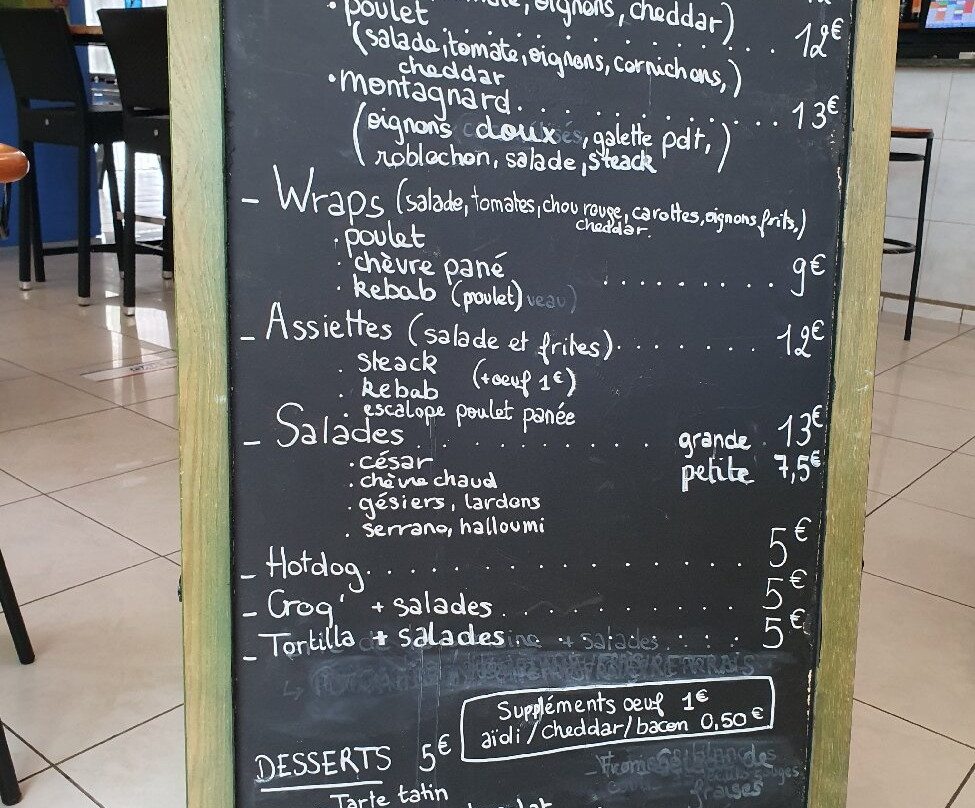 oignons, cheddar)
• poulet . . . . . . . . . . . . 12€
(salade, tomate, oignons, cornichons,)
cheddar
• montagnard . . . . . . . . . . . 13€
(oignons doux, galette pdt,)
roblochon, salade, steack
- Wraps (salade, tomates, chou rouge, carottes, oignons frits,)
cheddar.
. poulet
. chèvre pané . . . . . . . . . 9€
. kebab (poulet) veau)
- Assiettes (salade et frites). . . . . . . 12€
. steack
. kebab (+oeuf 1€)
. escalope poulet panée
- Salades . . . . . . . . . . grande . 13€
. césar petite 7,5€
. chèvre chaud
. gésiers, lardons
. serrano, halloumi
- Hotdog. . . . . . . . . . . . . . . 5€
- Croq' + salades . . . . . . . . . . 5€
- Tortilla + salades + salades . . . . 5€
Suppléments oeuf 1€
aïoli / cheddar / bacon 0,50€
DESSERTS 5€
Tarte tatin
fraises